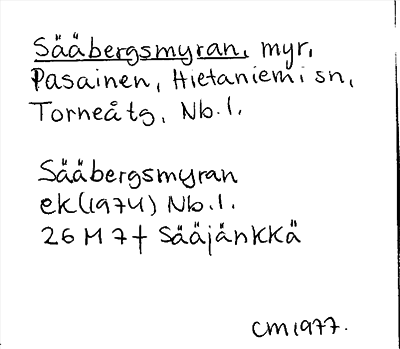 Sääbergsmyran, myr,
Pasainen, Hietaniemi sn,
Torneåtg, Nb.l.
Sääbergsmyran
ek(1974) Nb.l.
26 M 7f Sääjänkkä
CM1977.